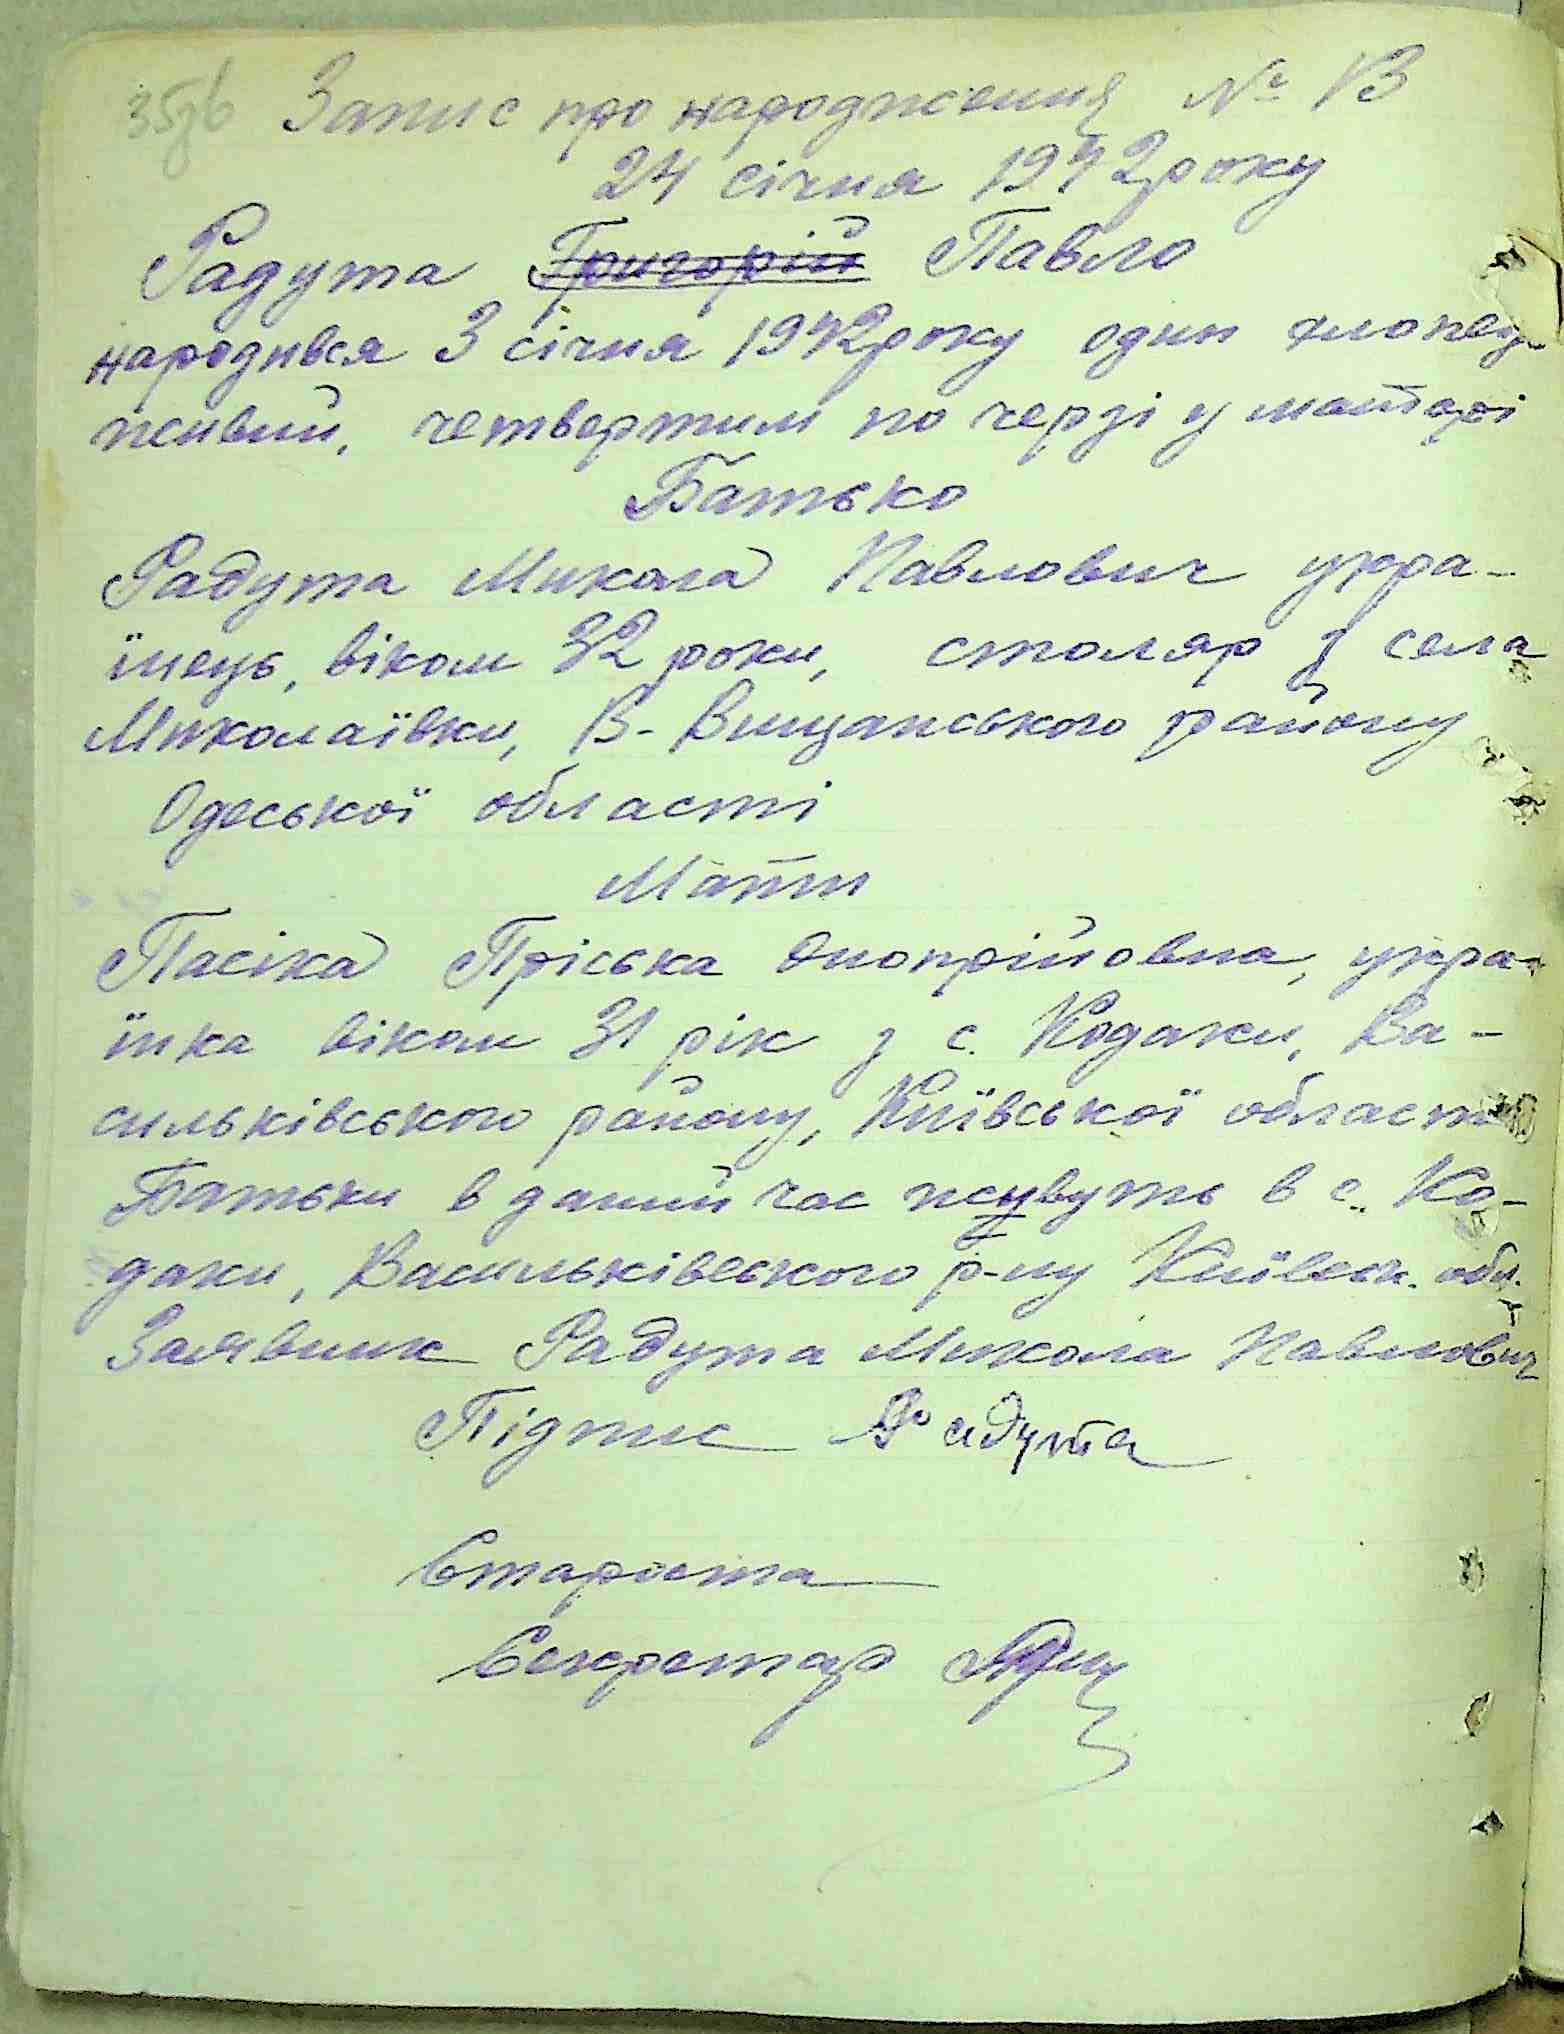 35зв Запис про народження № 13
24 січня 1942 року
Радута Григорій Павло
народився 3 січня 1942 року один хлопець
живий, четвертим по черзі у матері
Батько
Радута Микола Павлович укра-
їнець, віком 32 роки, столяр з села
Миколаївки, В-Вищанського району
Одеської області
Мати
Пасіка Пріська Онопрійовна, укра-
їнка віком 31 рік з с. Кодаки, Ва-
сильківського району, Київської області
Батьки в даний час живуть в с. Ко-
даки, Васильківського р-ну Київськ. обл.
Заявник Радута Микола Павлович
Підпис Радута
Староста
Секретар